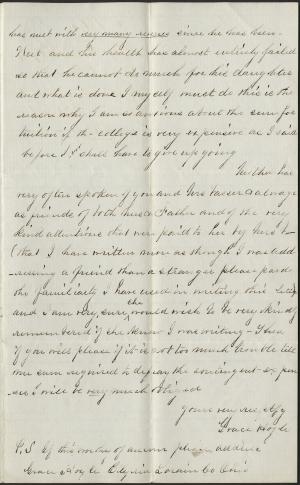 has met with very many reverses since he has been
West and his health has almost entirely failed
so that he cannot do much for his daughter
and what is done I myself must do this is the
reason why I am so anxious about the sum for
tuition if the college is very expensive as I said
before I shall have to give up going
Mother has
very often spoken of you and Mrs Vassar & always
as friends of both hers & Father and of the very
kind attentions that were paid to her by hers
that I have written more as though I was add-
ressing a friend than a stranger please pardon
the familiarity I have used in writing this letter
and I am very sure she would wish to be very kindly
remembered if she knew I was writing
If you will please if it is not too much trouble tell
me sum required to defray the contingent expen-
ses I will be very much obliged
Yours very resctfy
Grace Hoyle
P.S. If this worthy of answer please address
Grace Hoyle Elyria Lorain Co Ohio